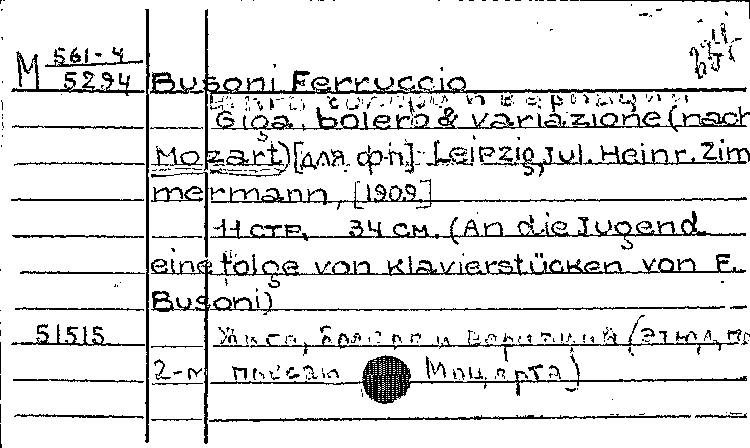 M 561-4
5294
Busoni Ferruccio
Giga, bolero & variazione (nach
Mozart) [для ф-п] Leipzig, Jul. Heinr. Zim
mermann, [1909]
11 стр. 34 см. (An die Jugend
eine folge von Klavierstücken von F.
Busoni)
51515
Жига, болеро и вариации (этюд, по
2-м пьесам Моцарта)